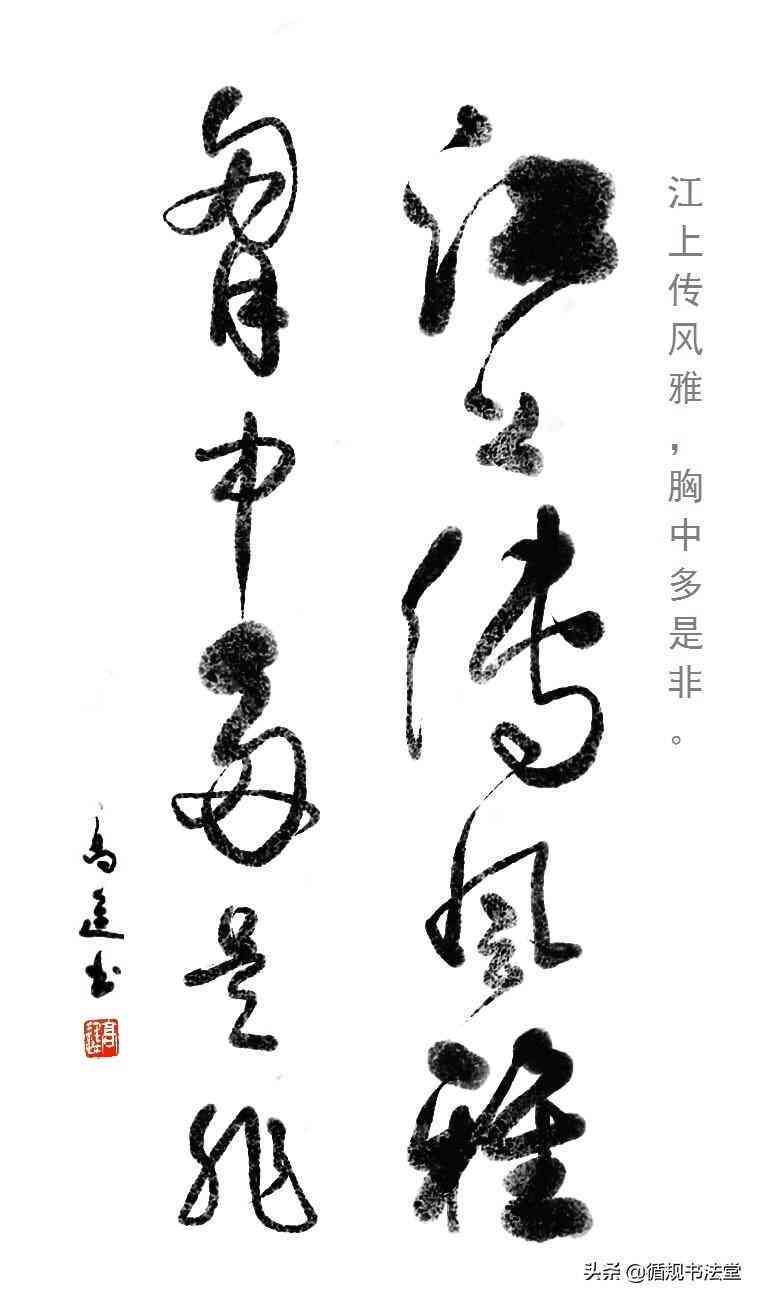 江上传风雅，胸中多是非。
江上傳風雅
胷中多是非
头条 @循规书法堂